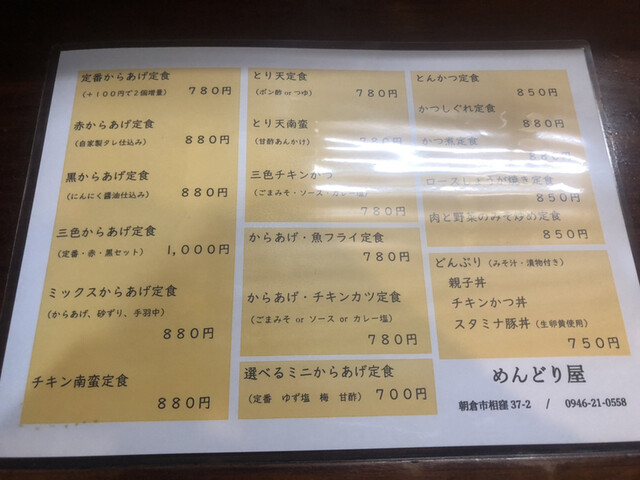 定番からあげ定食
(+100円で2個増量) 780円
赤からあげ定食
(自家製タレ仕込み) 880円
黒からあげ定食
(にんにく醤油仕込み) 880円
三色からあげ定食
(定番・赤・黒セット) 1,000円
ミックスからあげ定食
(からあげ、砂ずり、手羽中)
880円
チキン南蛮定食
880円
とり天定食
(ポン酢 or つゆ) 780円
とり天南蛮
(甘酢あんかけ)
三色チキンかつ
(ごまみそ・ソース・カレー塩)
780円
からあげ・魚フライ定食
780円
からあげ・チキンカツ定食
(ごまみそ or ソース or カレー塩)
780円
選べるミニからあげ定食
(定番 ゆず塩 梅 甘酢) 700円
とんかつ定食
850円
かつしぐれ定食
880円
かつ煮定食
ロースしょうが焼き定食
850円
肉と野菜のみそ炒め定食
850円
どんぶり (みそ汁・漬物付き)
親子丼
チキンかつ丼
スタミナ豚丼 (生卵黄使用)
750円
めんどり屋
朝倉市相窪 37-2 / 0946-21-0558